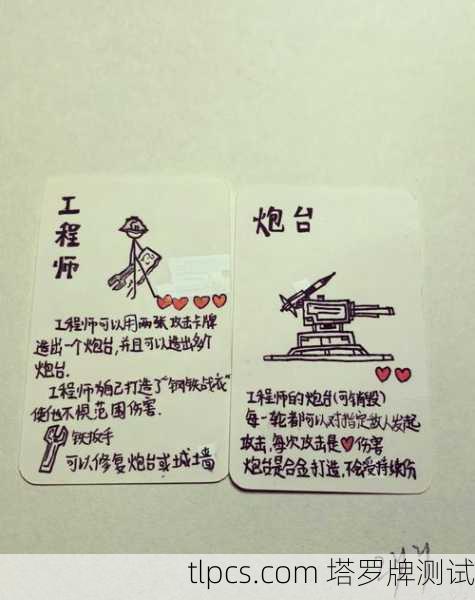 工程师
工程师可以用两张攻击卡牌
造出一个炮台,并且可以造出多个
炮台.
工程师为自己打造了"钢铁战衣"
使他不惧范围伤害.
铁扳手
可以修复炮台或城墙
炮台
工程师的炮台(可销毁)
每一轮都可以对指定敌人发起
攻击,每次攻击是❤伤害
炮台是合金打造,不会受持续伤
tlpcs.com 塔罗牌测试